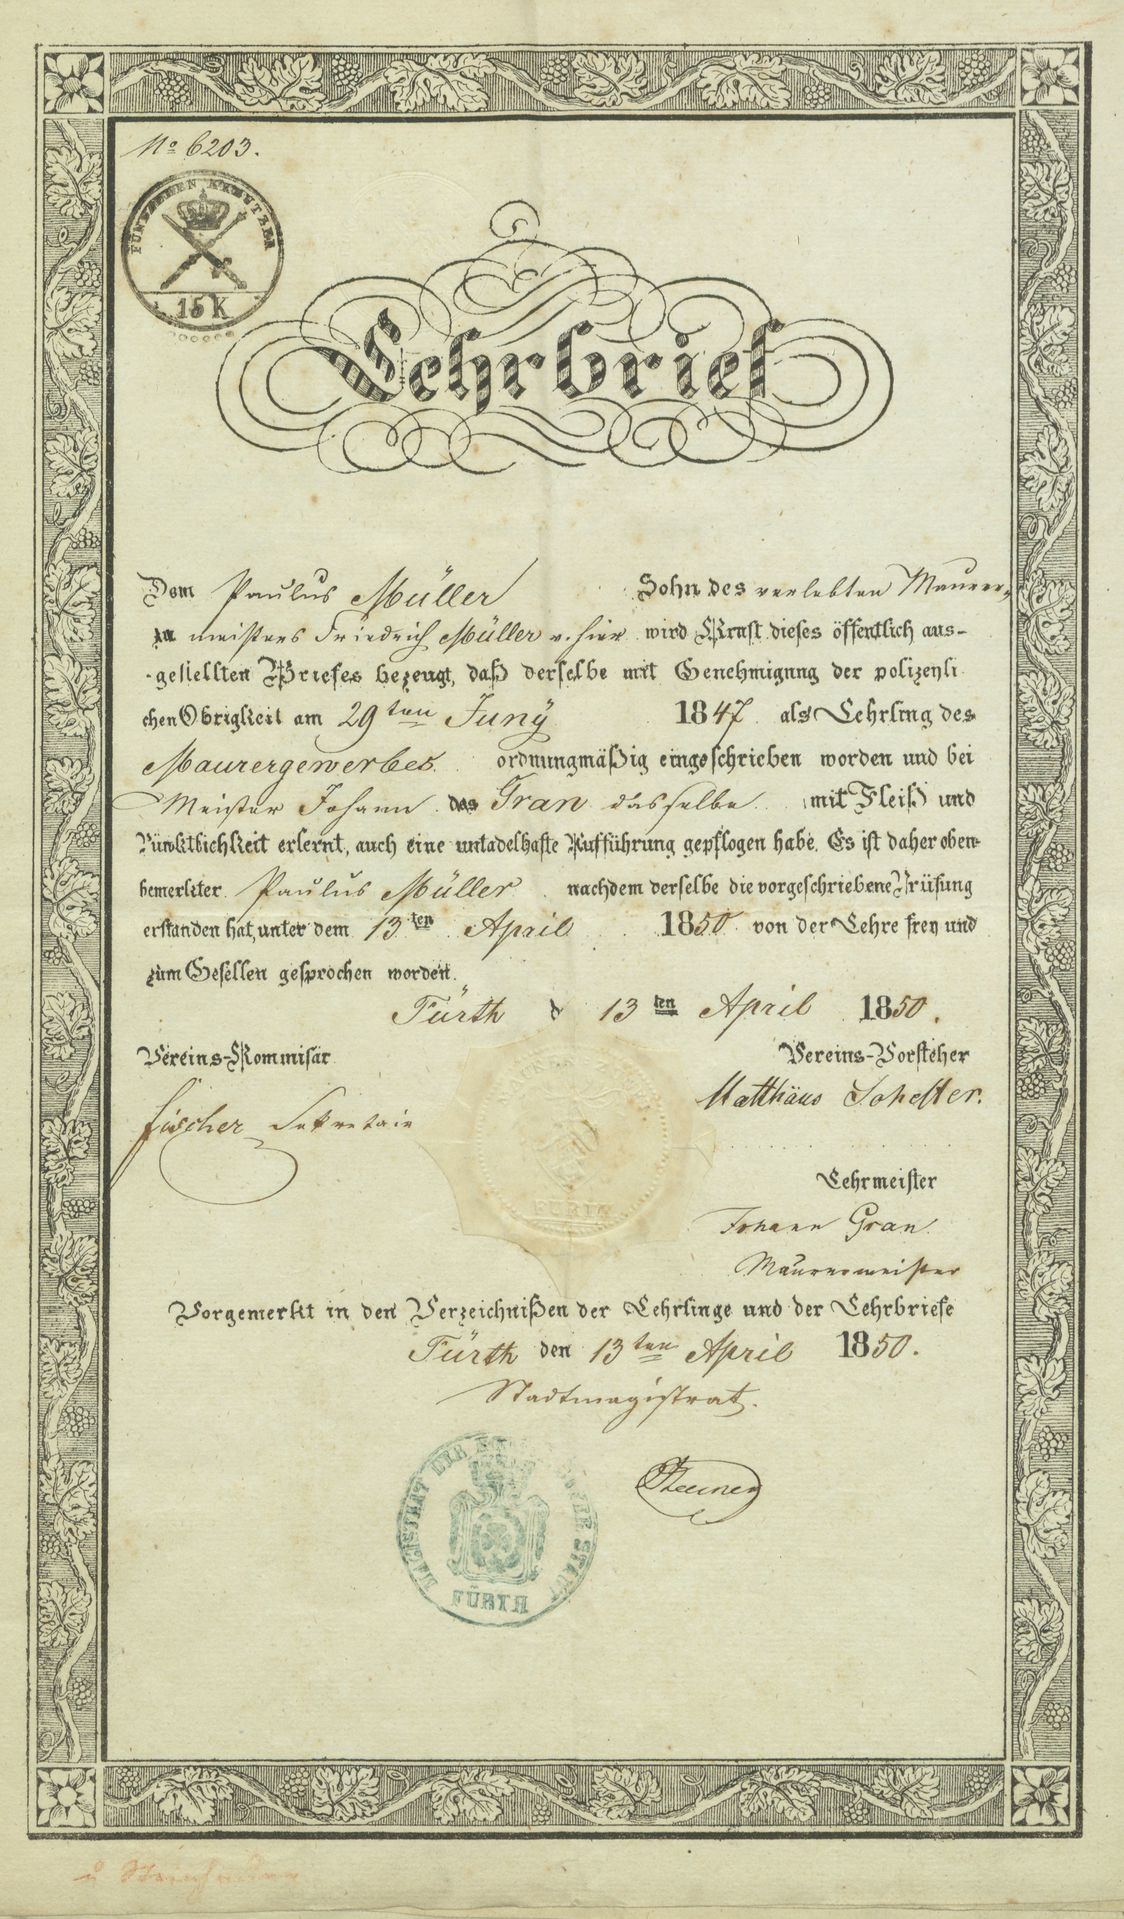 No 6203.
FÜNFZEHEN KREUTZER
15 K
Lehrbrief
Dem Paulus Müller Sohn des verlebten Maurer-
zu meisters Friedrich Müller v. hier wird Kraft dieses öffentlich aus-
gestellten Briefes bezeugt, daß derselbe mit Genehmigung der polizeyli
chen Obrigkeit am 29ten Juny 1847 als Lehrling des
Maurergewerbes ordnungmäßig eingeschrieben worden und bei
Meister Johann das Gran dasselbe mit Fleiß und
Pünktlichkeit erlernt, auch eine untadelhafte Aufführung gepflogen habe. Es ist daher oben-
bemerkter Paulus Müller nachdem derselbe die vorgeschriebene Prüfung
erstanden hat, unter dem 13ten April 1850 von der Lehre frey und
zum Gesellen gesprochen worden.
Fürth d 13ten April 1850.
Vereins-Kommisär Vereins-Vorsteher
Fischer Sekretair Matthäus
FÜRTH
Lehrmeister
Johann Gran
Maurermeister
Vorgemerkt in den Verzeichnißen der Lehrlinge und der Lehrbriefe
Fürth den 13ten April 1850.
Stadtmagistrat.
MAGISTRAT DER STADT
FÜRTH